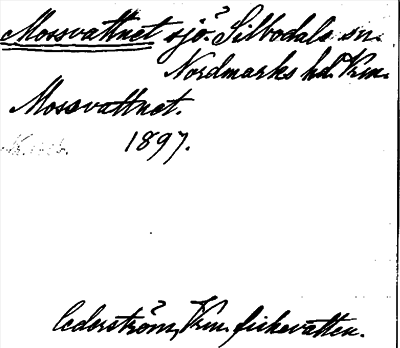 Mossvattnet sjö? Silbodals sn.
Nordmarks hd. Vrm.
Mossvattnet.
1897.
Cederström, Vrm. fiskevatten.